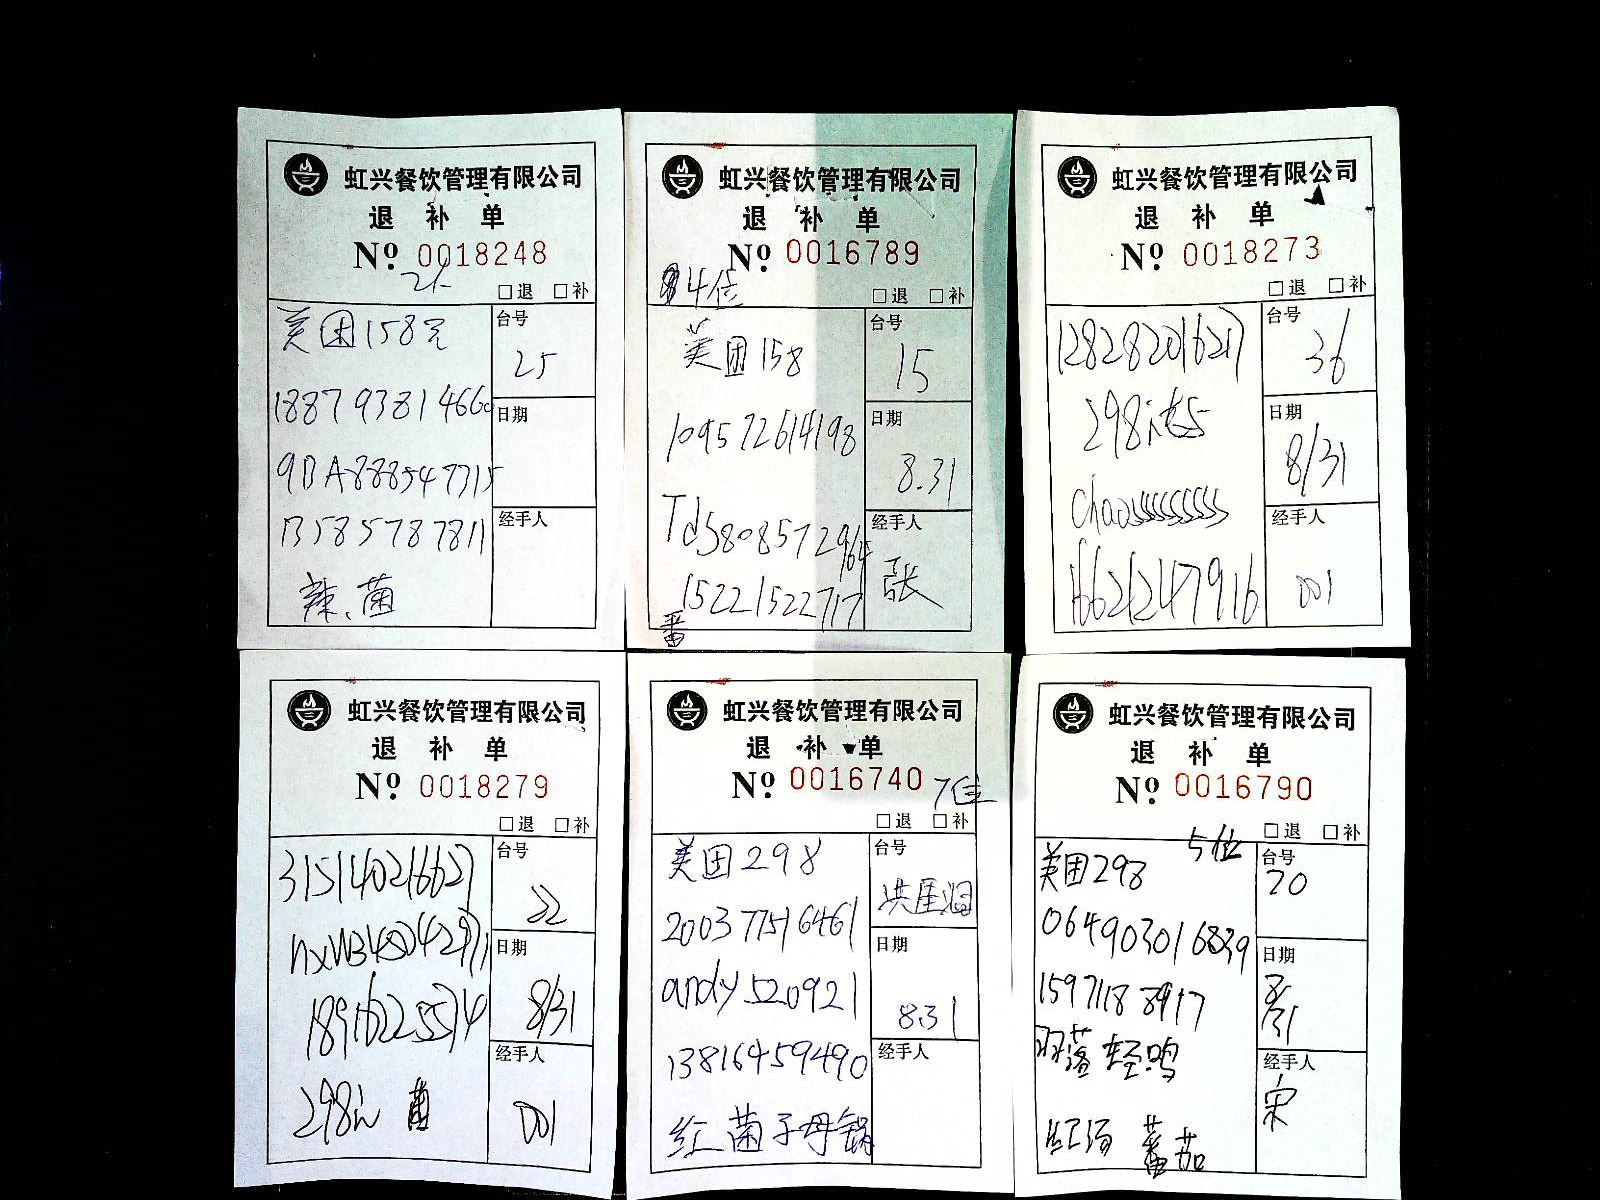 虹兴餐饮管理有限公司
退 补 单
Nº 0018248
□退 □补
美团158元
台号
25
188793814660
日期
9DA888547315
13585787811
经手人
辣、菌
虹兴餐饮管理有限公司
退 补 单
Nº 0016789
4位
□退 □补
美团158
台号
15
109572614198
日期
8.31
Td5808572964
经手人
张
15221522717
番
虹兴餐饮管理有限公司
退 补 单
Nº 0018273
□退 □补
128282016217
台号
36
298元
日期
8/31
chaossssssssss
经手人
001
16621247916
虹兴餐饮管理有限公司
退 补 单
Nº 0018279
□退 □补
315140216627
台号
22
日期
8/31
18916225574
经手人
001
298元 菌
虹兴餐饮管理有限公司
退 补 单
Nº 0016740
7位
□退 □补
美团298
台号
洪崖洞
200377516461
日期
831
andy520921
13816459490
经手人
红菌子母锅
虹兴餐饮管理有限公司
退 补 单
Nº 0016790
□退 □补
5位
美团298
台号
70
064903016839
日期
8.31
15971188917
羽落轻鸣
经手人
宋
红汤 蕃茄